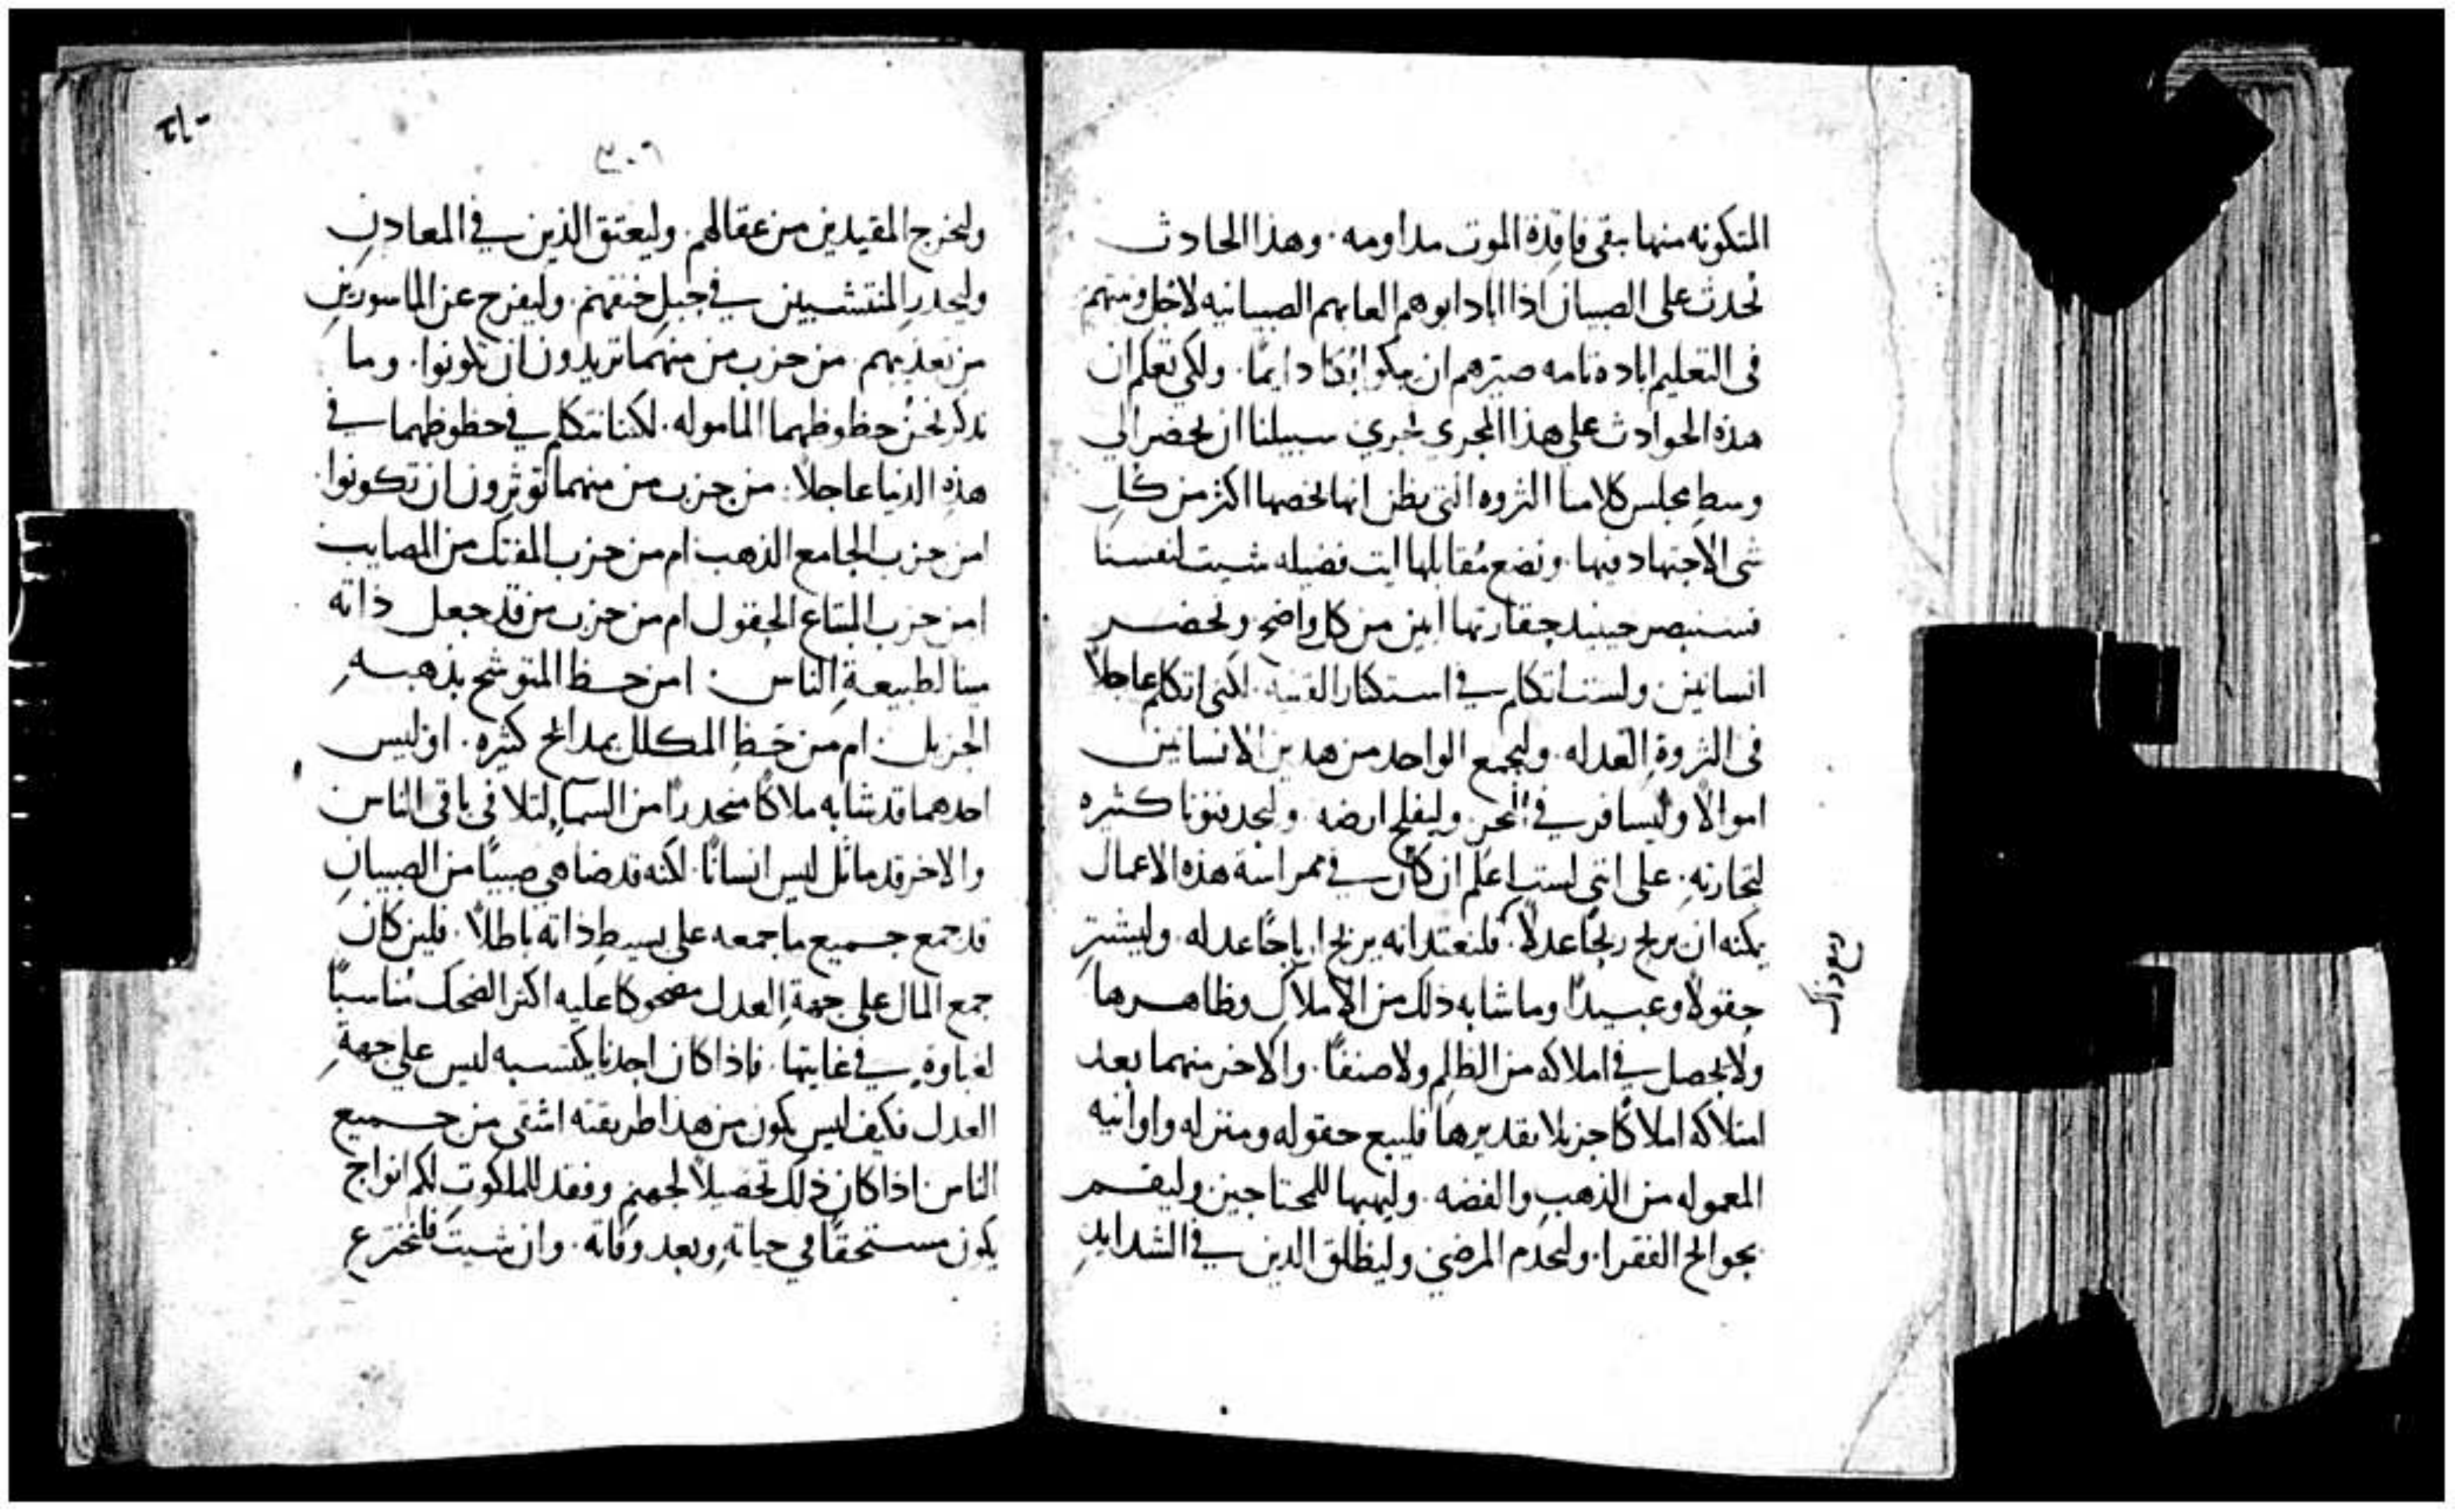 المتكونه منها يبقى فاقدة الموت مداومه. وهذا الحادث
تحدث على الصبيان اذا اباد ابوهم العابهم الصبيانيه لاجل ونيتهم
فى التعليم اباده تامه صيرهم ان يبكوا بكا دايمًا. ولكى تعلم ان
هذه الحوادث على هذا المجرى تجري سبيلنا ان نحضر الى
وسط مجلس كلامنا الثروه التى يظن انها يخصها اكثر من كل
شى الاجتهاد فيها. ونضع مقابلها ايت فضيله شيت لنفسنا
فسنبصر حينيذ حقارتها ابين من كل واضح ونحضر
انسانين ولست اتكلم في استكثار القنيه. لكنى اتكلم عاجلاً
فى الثروة العدله. وليجمع الواحد من هذين الانسانين
اموالاً وليسافر في البحر. وليفلح ارضه. وليجد فنونا كثيره
لتجارته. على اننى لست اعلم ان كان في ممراسة هذه الاعمال
يمكنه ان يربح ربحًا عدلاً. فلنعتد انه يربح ارباحًا عدله. وليشتر
حقولاً وعبيدًا وما شابه ذلك من الاملاك وظاهرها
ولا يحصل في املاكه من الظلم ولا صنفًا. والاخر منهما بعد
امتلاكه املاكًا جزيلا تقديرها فليبع حقوله ومنزله واوانيه
المعموله من الذهب والفضه. وليهبها للمحتاجين وليقم
بحوايج الفقرا. وليخدم المرضى وليطلق الذين في الشدايد
ربع ذاك
٣٠٦
وليخرج المقيدين من عقالهم. وليعتق الذين في المعادن
وليحدر المنتشبين في حبل خنقهم. وليفرج عن الماسورين
من تعذيبهم. من حزب من منهما تريدون ان تكونوا. وما
نذكر نحن حظوظهما الماموله. لكننا نتكلم في حظوظهما في
هذه الدنيا عاجلاً. من حزب من منهما توثرون ان تكونوا
امن حزب الجامع الذهب ام من حزب المفتك من المصايب
امن حزب المبتاع الحقول ام من حزب من قد جعل ذاته
مينا لطبيعة الناس. امن حظ المتوشح بذهبه
الجزيل ام من حظ المكلل بمدايح كثيره. اوليس
احدهما قد شابه ملاكًا منحدرًا من السما لتلافى باقى الناس
والاخر قد ماثل ليس انسانًا. لكنه قد ضاهي صبيًا من الصبيان
قد جمع جميع ما جمعه على بسيط ذاته باطلاً. فلين كان
جمع المال على جهة العدل مضحوكا عليه اكثر الضحك مناسبًا
لغباوه في غايتها. فاذا كان احدنا يكتسبه ليس على جهة
العدل فكيف ليس يكون من هذا طريقته اشقى من جميع
الناس اذا كان ذلك تحصيلاً لجهنم وفقد للملكوت لكم انواح
يكون مستحقًا في حياته وبعد وفاته. وان شيت فلنخترع